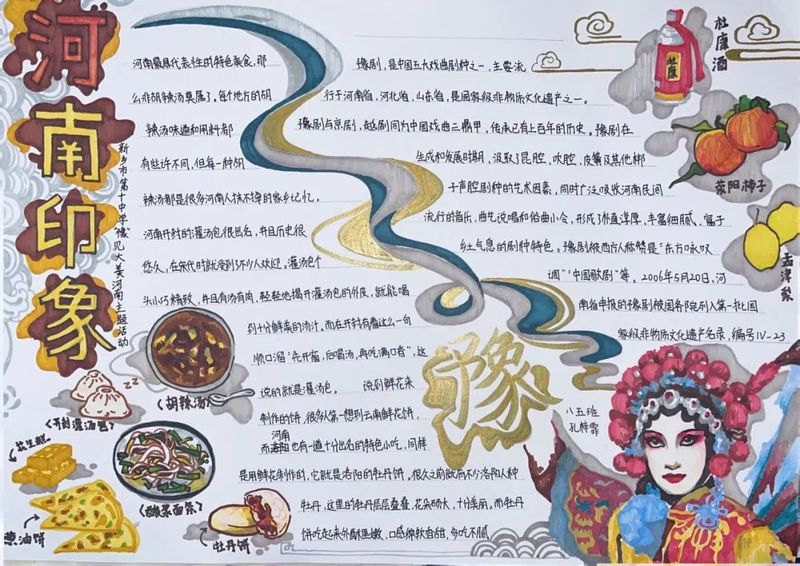 河南印象
新乡市第十中学"豫"见大美河南主题活动
河南最具代表性的特色美食,那
么非胡辣汤莫属了,每个地方的胡
辣汤味道和用料都
有些许不同,但每一种胡
辣汤都是很多河南人抹不掉的家乡记忆。
河南开封的灌汤包很出名,并且历史很
悠久,在宋代时就受到不少人欢迎,灌汤包个
头小巧精致,并且有汤有肉,轻轻地揭开灌汤包的外皮,就能喝
到十分鲜美的汤汁。而在开封有着这么一句
顺口溜"先开窗,后喝汤,再吃满口香",这
说的就是灌汤包。 说到鲜花来
制作的饼,很多人第一想到云南鲜花饼,
河南
而洛阳也有一道十分出名的特色小吃,同样
是用鲜花制作的,它就是洛阳的牡丹饼,很久之前就有不少洛阳人种
牡丹,这里的牡丹层层叠叠,花朵硕大,十分美丽,而牡丹
饼吃起来外酥里嫩,口感绵软香甜,多吃不腻
豫剧,是中国五大戏曲剧种之一,主要流
行于河南省,河北省,山东省,是国家级非物质文化遗产之一。
豫剧与京剧,越剧同为中国戏曲三鼎甲,传承已有上百年的历史。豫剧在
生成和发展时期,汲取了昆腔,吹腔,皮簧及其他梆
子声腔剧种的艺术因素,同时广泛吸收河南民间
流行的音乐,曲艺说唱和俗曲小令,形成了朴直淳厚,丰富细腻、富于
乡土气息的剧种特色。豫剧被西方人称赞是"东方咏叹
调""中国歌剧"等。2006年5月20日,河
南省申报的豫剧被国务院列入第一批国
家级非物质文化遗产名录,编号IV-23
豫
杜康
杜康酒
荥阳柿子
孟津梨
八五班
孔梓霏
(胡辣汤)
zz
(开封灌汤包)
花生糕
(酸浆面条)
葱油饼
牡丹饼